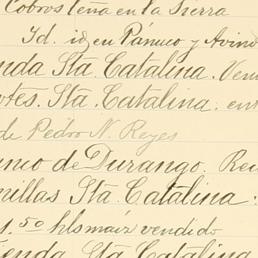 Cobros leña en la Sierra
Id. id, en Pánuco y Avino
nda Sta Catalina. Ven
otes. Sta. Catalina. en
de Pedro N. Reyes
anco de Durango. Rec
nillas Sta. Catalina.
1.50 hls maíz vendido
ienda Sta Catalina